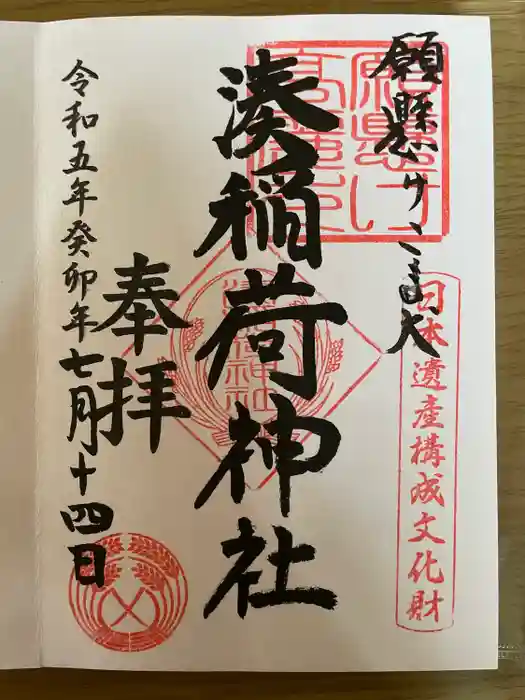 願懸けこま犬
日本遺産構成文化財
湊稲荷神社
奉拝
令和五年癸卯年七月十四日